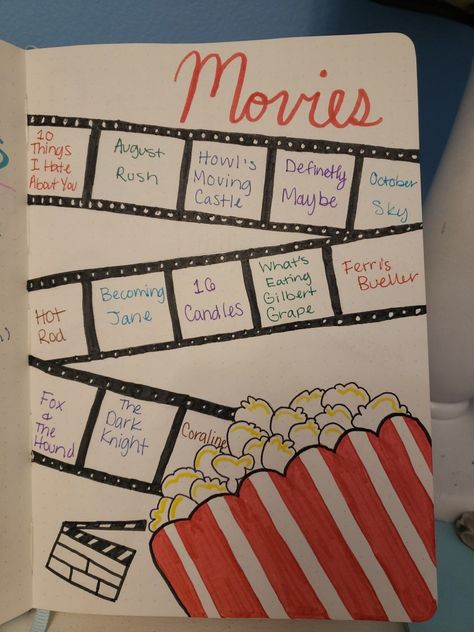 Movies
10
Things
I Hate
About You
August
Rush
Howl's
Moving
Castle
Definetly
Maybe
October
Sky
Hot
Rod
Becoming
Jane
16
Candles
What's
Eating
Gilbert
Grape
Ferris
Bueller
Fox
&
The
Hound
The
Dark
Knight
Coraline